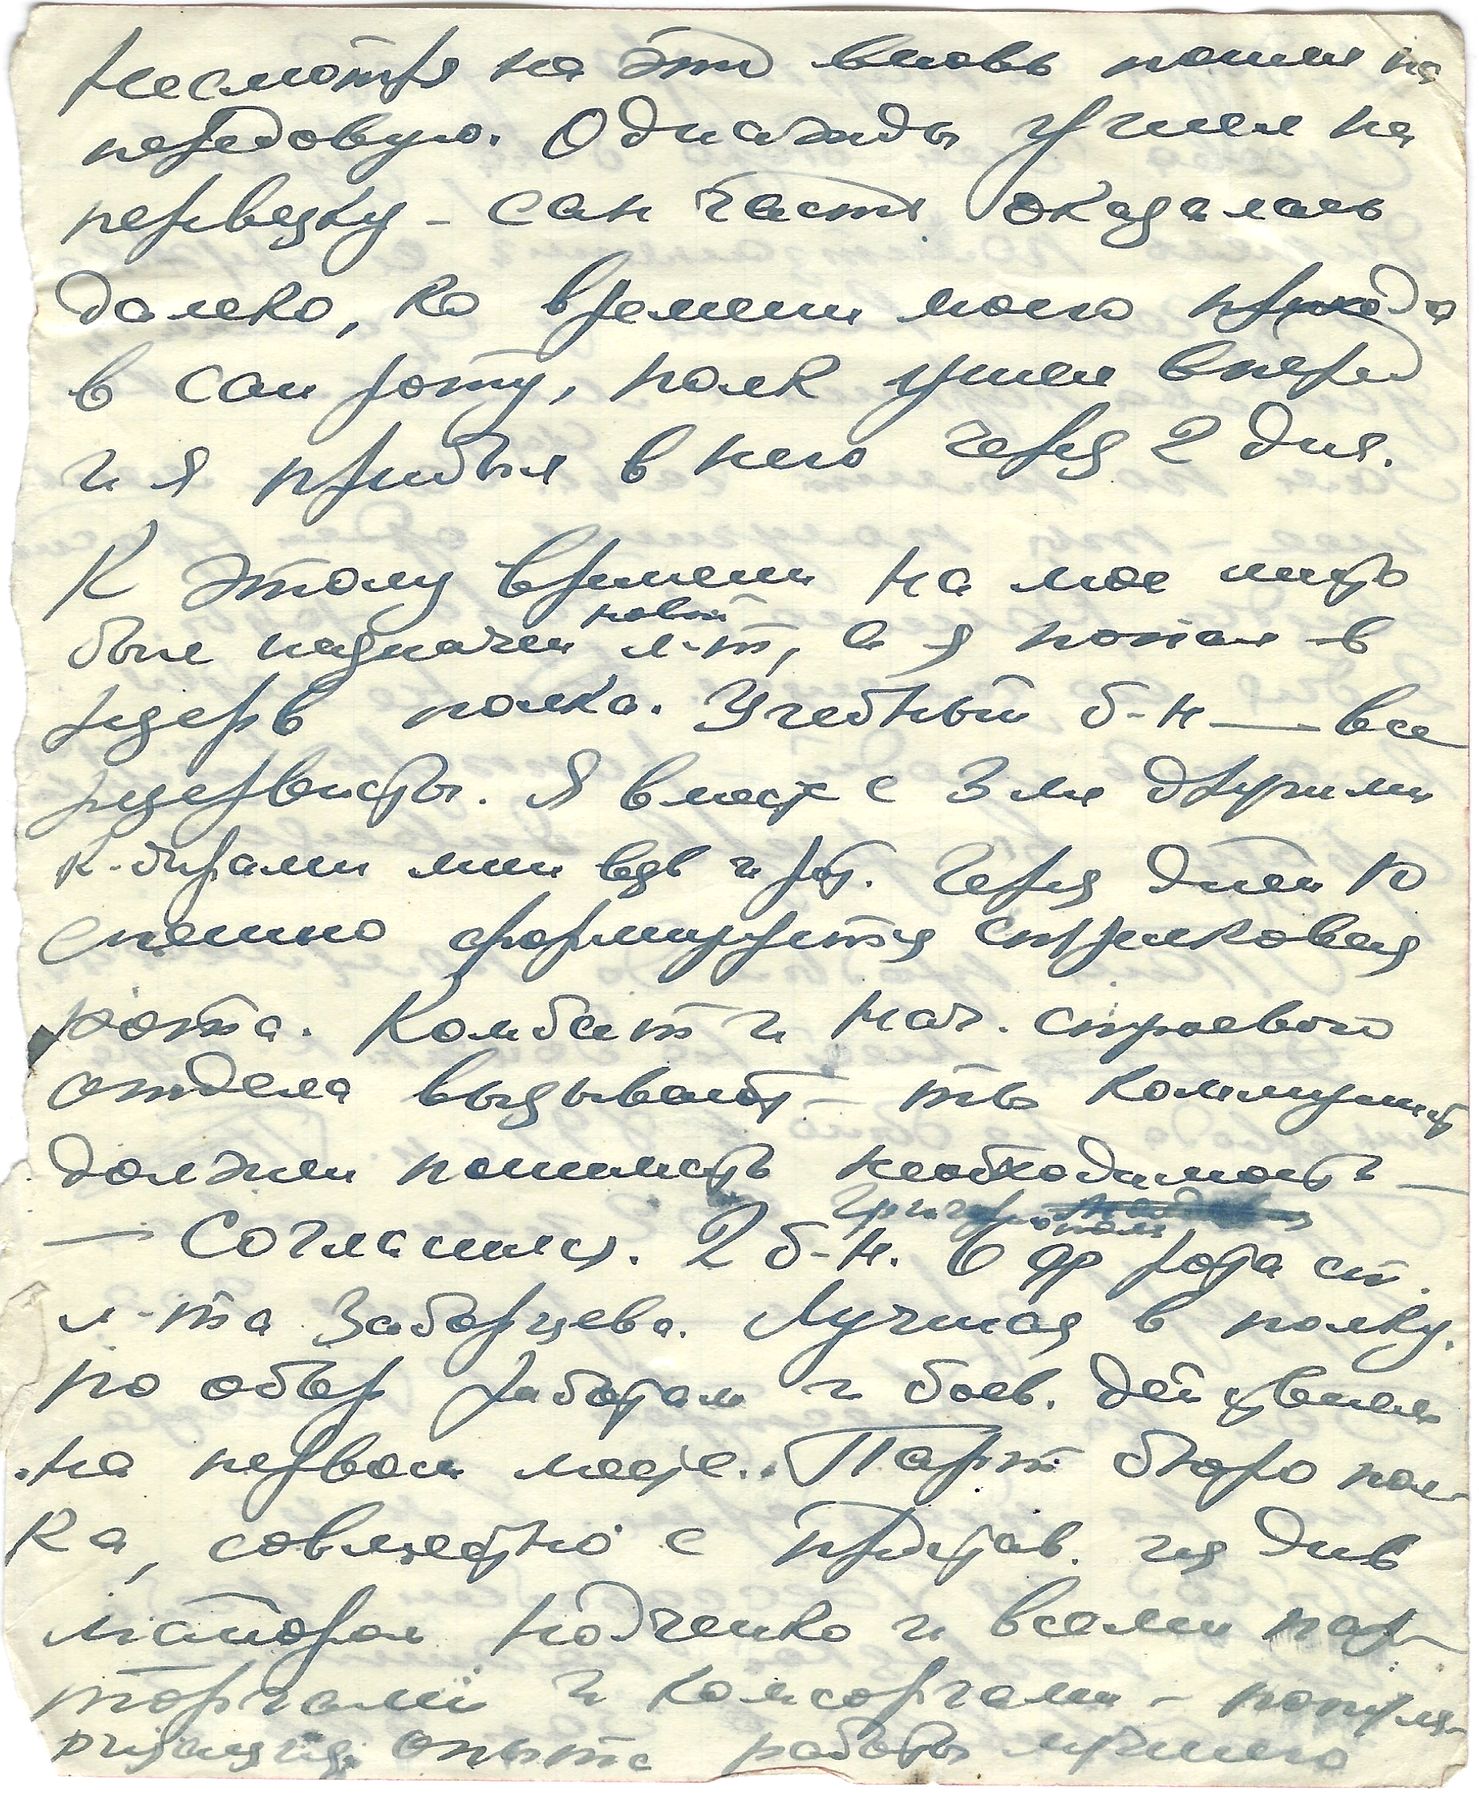 Несмотря на это вновь пошел на
передовую. Однажды ушел на
перевязку – сан часть оказалась
далеко, ко времени моего прихода
в сан роту, полк ушел вперед
и я прибыл в него через 2 дня.
К этому времени на мое место
новый
был назначен л-т, а я попал в
резерв полка. Учебный б-н — все
резервисты. Я вместе с 3 мя другими
к-дирами мин взв и рот. Через дней 10
спешно формируется стрелковая
рота. Комбат и нач. строевого
отдела вызывают – ты коммунист
должен понимать необходимость –
– Согласился. 2 б-н. 6 рота ст.
л-та Заборцева. Лучшая в полку.
по обор работам и боев. действиям
на первом месте. Парт бюро пол-
ка, совместно с представ. из див
майором и всеми пар-
торгами и комсоргами – популя-
ризация опыта работы лучшего